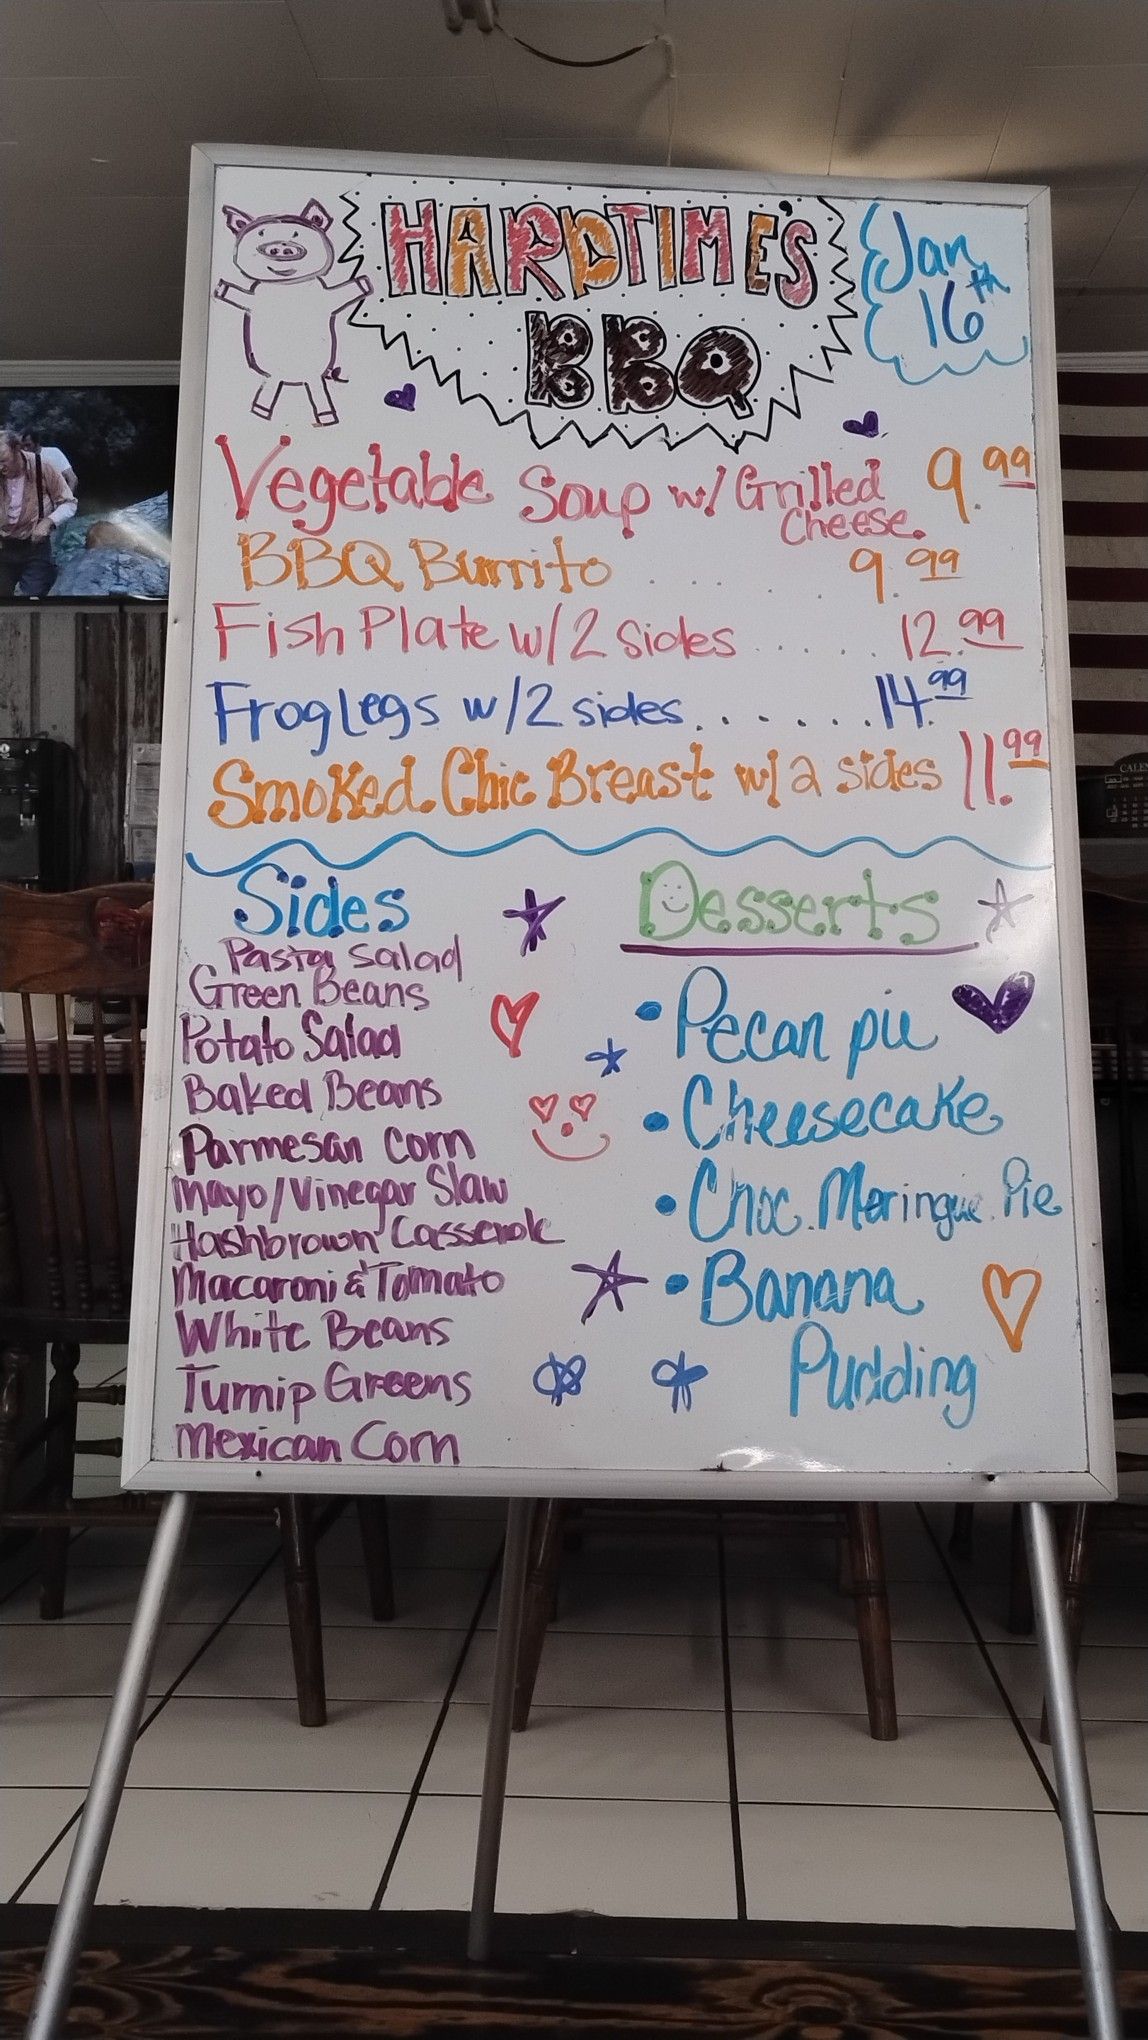 HARDTIME'S
BBQ
Jan
16th
Vegetable Soup w/ Grilled Cheese. 9.99
BBQ Burrito .... 9.99
Fish Plate w/2 sides ...... 12.99
Frog Legs w/2 sides ....... 14.99
Smoked Chic Breast w/2 sides 11.99
Sides
Pasta Salad
Green Beans
Potato Salad
Baked Beans
Parmesan Corn
Mayo/Vinegar Slaw
Hashbrown Casserole
Macaroni & Tomato
White Beans
Turnip Greens
Mexican Corn
Desserts
• Pecan pie
• Cheesecake
• Choc. Meringue Pie
• Banana
Pudding